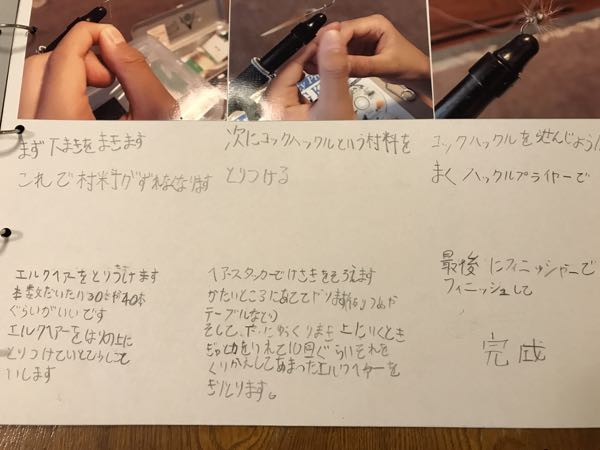 まず下まきをまきます
これで材料がずれなくなります
次にコックハックルという材料を
とりつける
コックハックルを
まく ハックルプライヤーで
エルクヘアーをとりつけます
本数だいたい30本や40本
ぐらいがいいです
エルクヘアーをはりの上に
とりつけて
いします
ヘアースタッカーでけさきをそろえます
かたいところにあてて
テーブルなど)
そして、 まき上にいくとき
ぎゅっと力をいれて10回ぐらいそれを
くりかえしてあまったエルクヘヤーを
きりとります。
最後にフィニッシャーで
フィニッシュして
完成